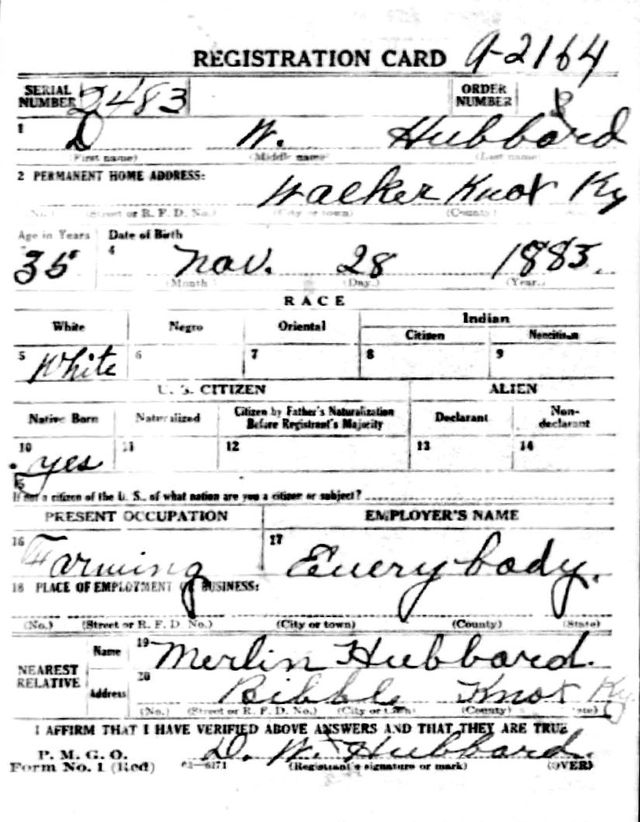 REGISTRATION CARD A-2164
SERIAL NUMBER 2483 ORDER NUMBER
1 D W. Hubbard
(First name) (Middle name) (Last name)
2 PERMANENT HOME ADDRESS:
Walker Knox Ky
(No.) (Street or R. F. D. No.) (City or town) (County) (State)
Age in Years Date of Birth
35 4 Nov. 28 1883.
(Month) (Day.) (Year.)
RACE
White Negro Oriental Indian
Citizen Noncitizen
5 White 6 7 8 9
U. S. CITIZEN ALIEN
Native Born Naturalized Citizen by Father's Naturalization Before Registrant's Majority Declarant Non-declarant
10 yes 11 12 13 14
15
If not a citizen of the U. S., of what nation are you a citizen or subject?
PRESENT OCCUPATION EMPLOYER'S NAME
16 Farming 17 Everybody.
18 PLACE OF EMPLOYMENT OR BUSINESS:
(No.) (Street or R. F. D. No.) (City or town) (County) (State)
NEAREST RELATIVE
Name 19 Merlin Hubbard.
Address 20 Bibble Knox Ky
(No.) (Street or R. F. D. No.) (City or town) (County) (State)
I AFFIRM THAT I HAVE VERIFIED ABOVE ANSWERS AND THAT THEY ARE TRUE
P. M. G. O. D. W. Hubbard.
Form No. 1 (Red) 03—6171 (Registrant's signature or mark) (OVER)